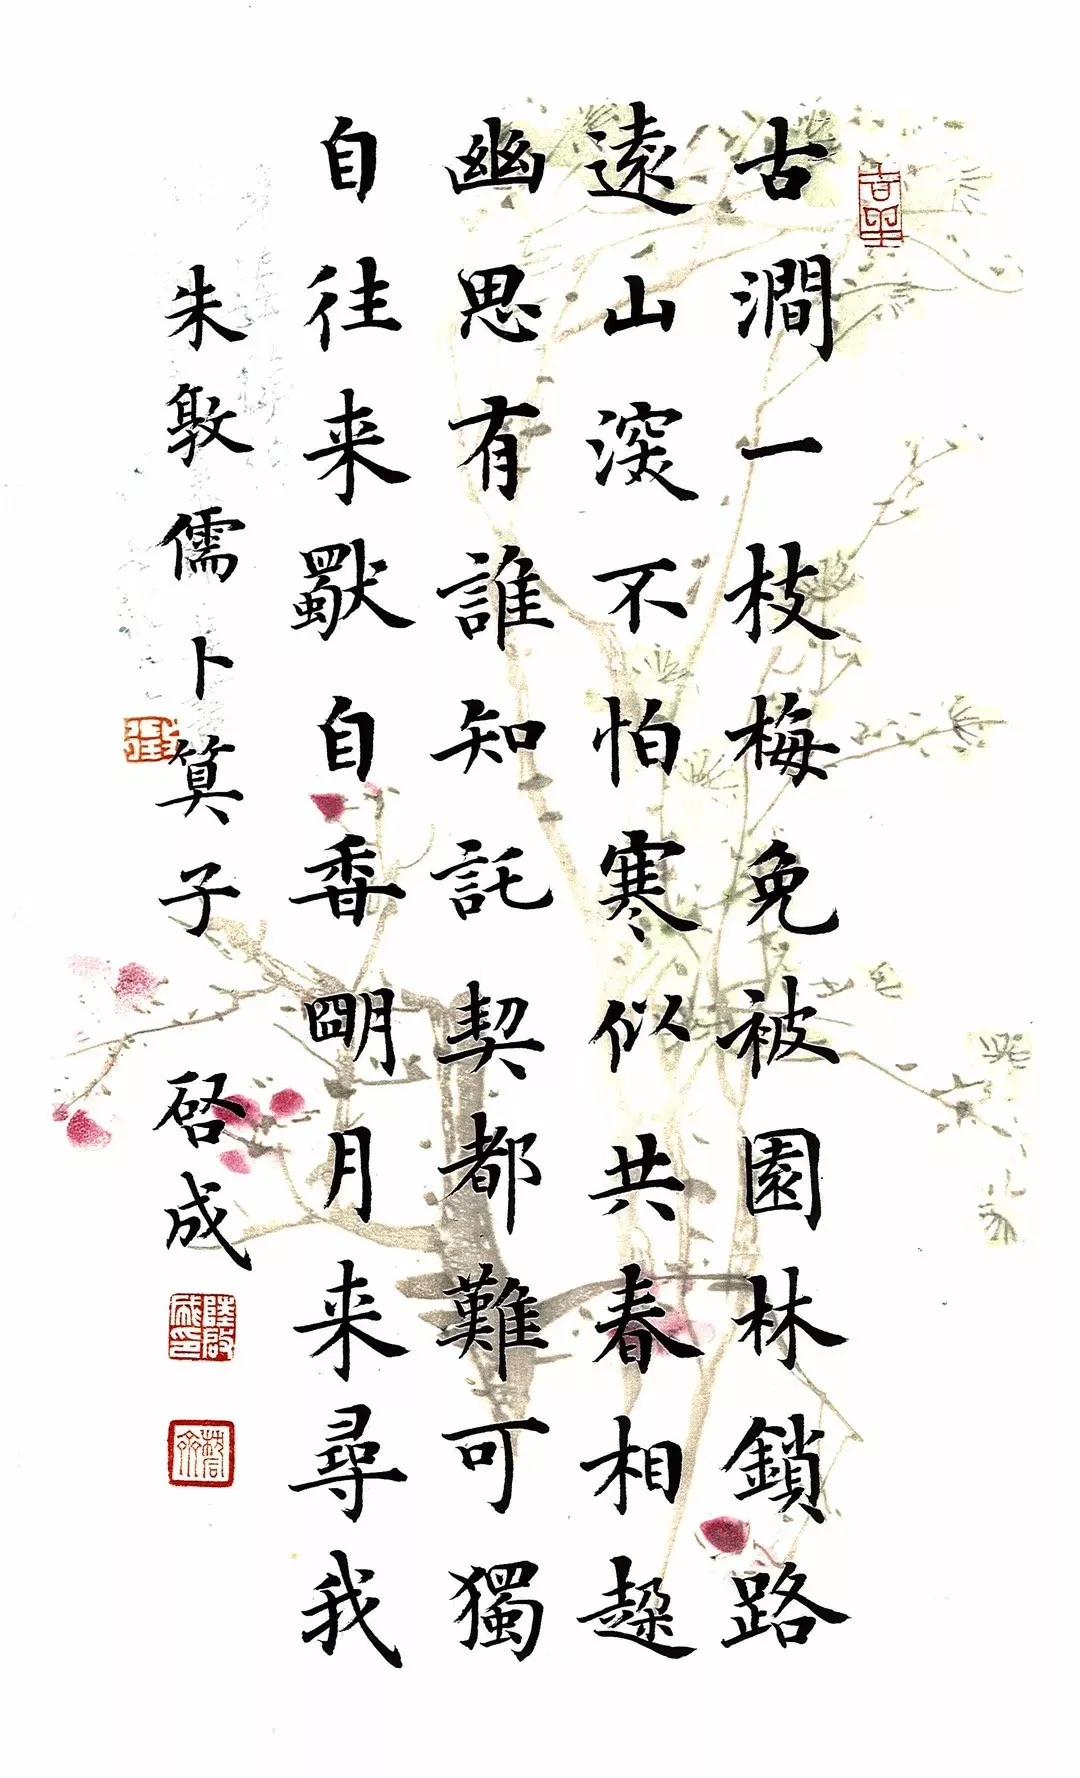 古澗一枝梅免被園林鎖路
遠山深不怕寒似共春相趓
幽思有誰知託契都難可獨
自往来獨自香朙月来尋我
朱敦儒卜算子 啓成
陸啟成印